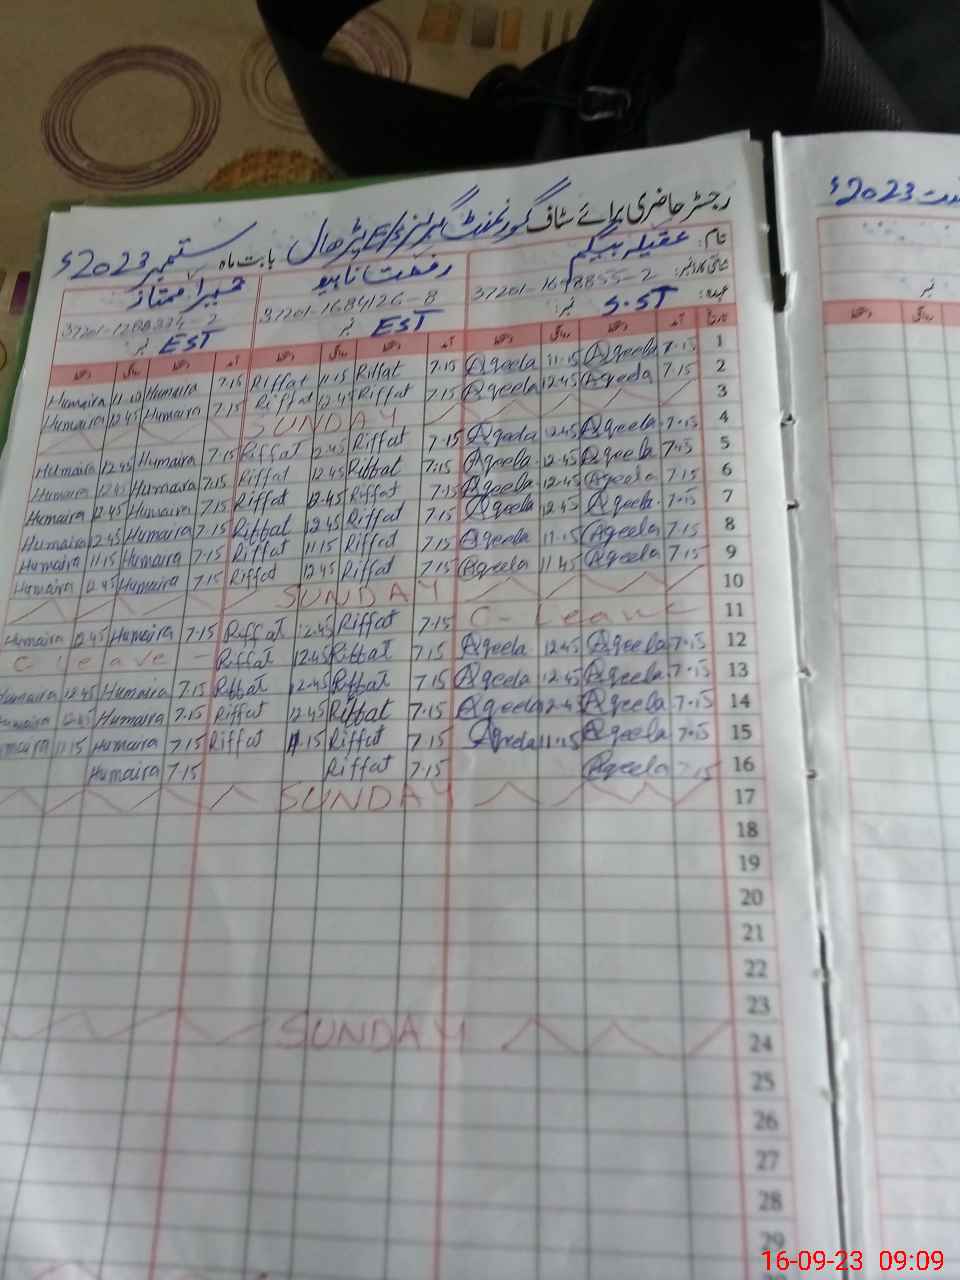 رجسٹر حاضری برائے سٹاف گورنمنٹ گرلز E/S پڑھال بابت ماہ ستمبر 2023ء
2023ء
نام: عقیلہ بیگم رفعت ناہید حمیرا ممتاز
شناختی کارڈ نمبر: 37201-1648855-2 37201-1684126-8
عہدہ: S.ST نمبر: EST نمبر EST نمبر
Humaira 11.10 Humaira 7.15 Riffat 11.15 Riffat 7.15 Aqeela 11.15 Aqeela 7.15 1
Humaira 12.45 Humaira 7.15 Riffat 12.45 Riffat 7.15 Aqeela 12.45 Aqeela 7.15 2
SUNDAY 3
Humaira 12.45 Humaira 7.15 Riffat 12.45 Riffat 7.15 Aqeela 12.45 Aqeela 7.15 4
Humaira 12.45 Humaira 7.15 Riffat 12.45 Riffat 7.15 Aqeela 12.45 Aqeela 7.15 5
Humaira 12.45 Humaira 7.15 Riffat 12.45 Riffat 7.15 Aqeela 12.45 Aqeela 7.15 6
Humaira 12.45 Humaira 7.15 Riffat 12.45 Riffat 7.15 Aqeela 12.45 Aqeela 7.15 7
Humaira 11.15 Humaira 7.15 Riffat 11.15 Riffat 7.15 Aqeela 11.15 Aqeela 7.15 8
Humaira 12.45 Humaira 7.15 Riffat 12.45 Riffat 7.15 Aqeela 11.45 Aqeela 7.15 9
SUNDAY 10
Humaira 12.45 Humaira 7.15 Riffat 12.45 Riffat 7.15 C- Leave 11
C leave - Riffat 12.45 Riffat 7.15 Aqeela 12.45 Aqeela 7.15 12
Humaira 12.45 Humaira 7.15 Riffat 12.45 Riffat 7.15 Aqeela 12.45 Aqeela 7.15 13
Humaira 12.45 Humaira 7.15 Riffat 12.45 Riffat 7.15 Aqeela 12.4 Aqeela 7.15 14
maira 11.15 Humaira 7.15 Riffat 11.15 Riffat 7.15 Aqeela 11.15 Aqeela 7.15 15
Humaira 7.15 Riffat 7.15 Aqeela 7.15 16
SUNDAY 17
18
19
20
21
22
23
SUNDAY 24
25
26
27
28
29
16-09-23 09:09